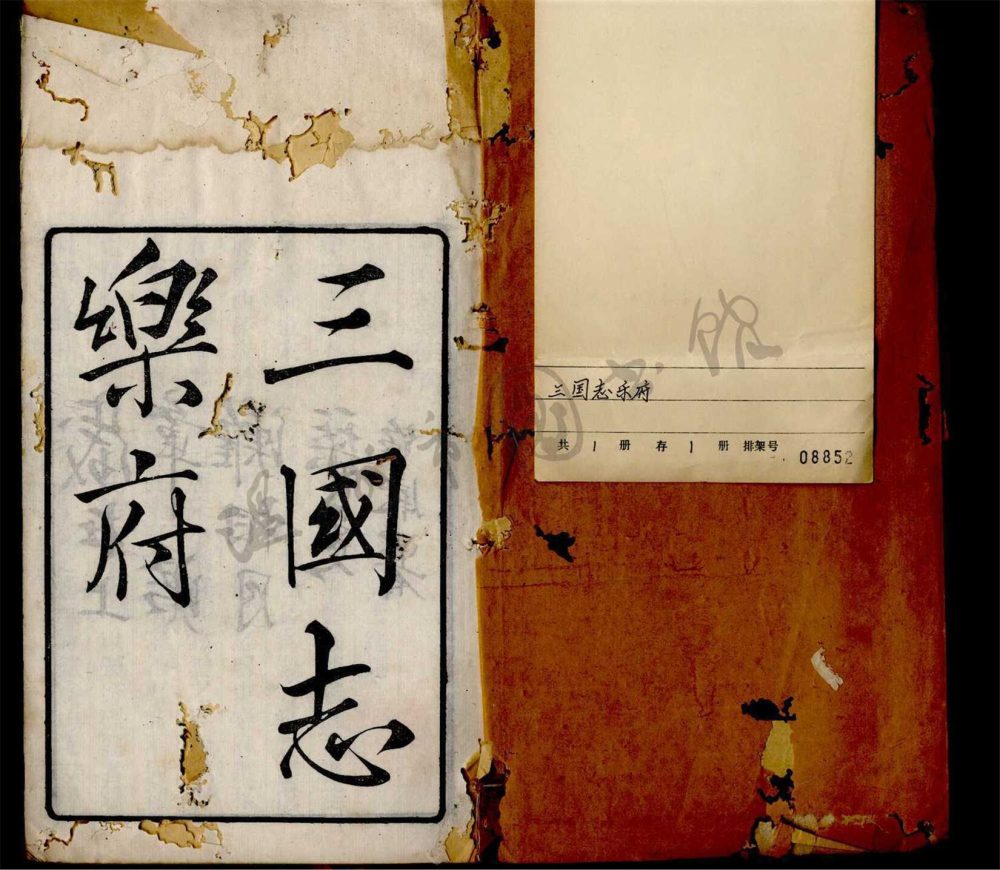 三國志
樂府
三国志乐府
共 1 册 存 1 册 排架号
08852